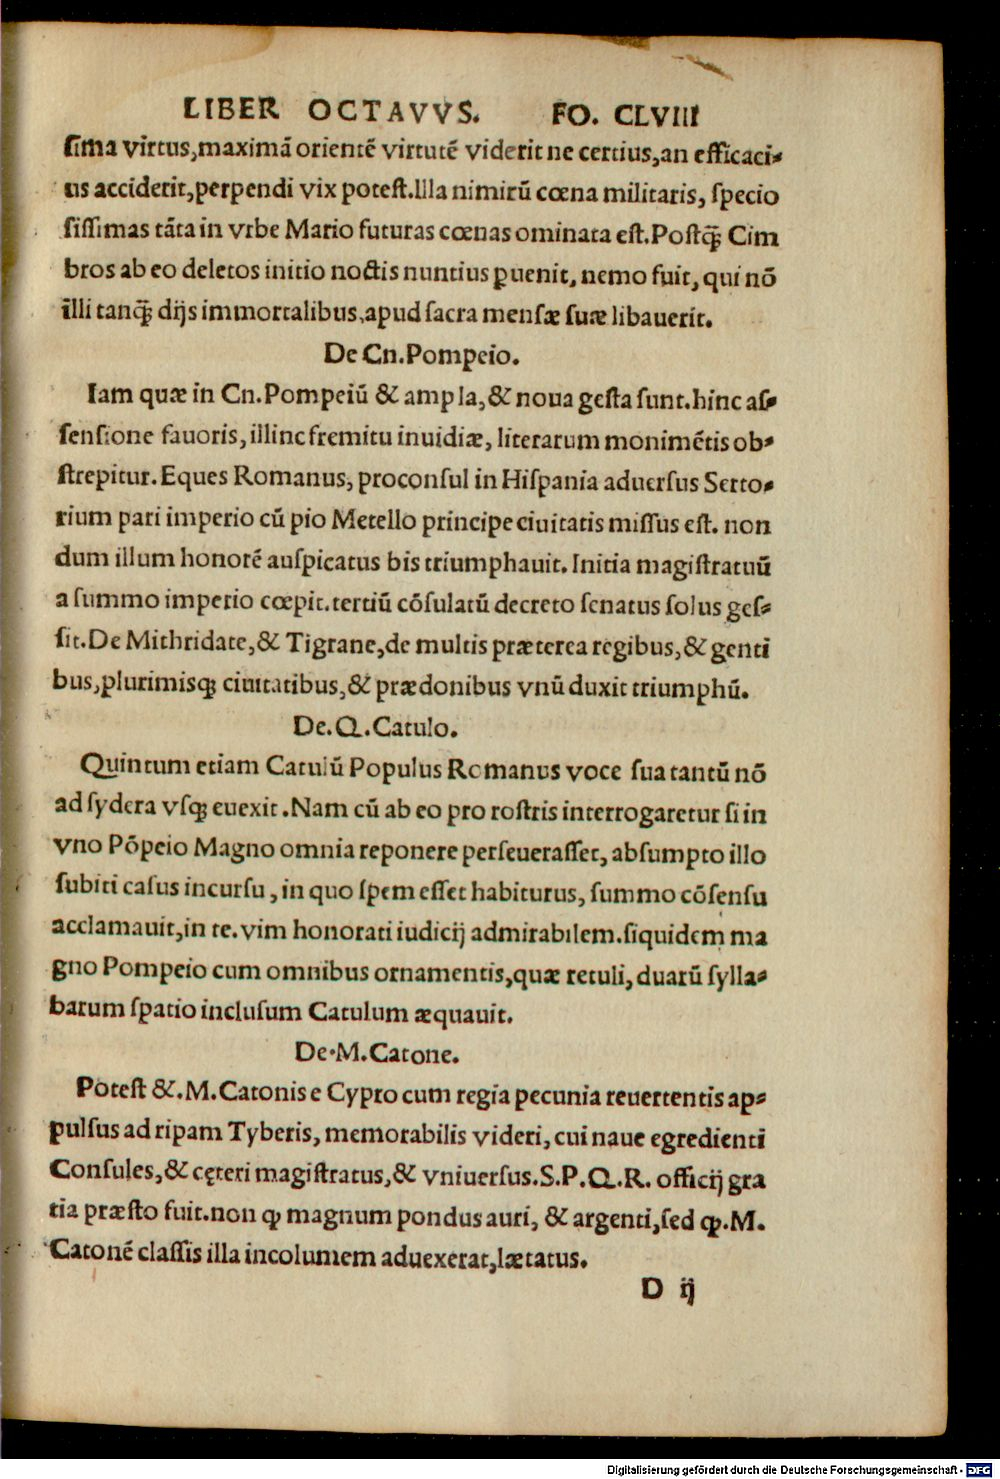 LIBER OCTAVVS. FO. CLVIII
ſima virtus,maximã orientẽ virtutẽ viderit ne certius,an efficaci-
us acciderit,perpendi vix poteſt.Illa nimirũ cœna militaris, ſpecio
ſiſſimas tãta in vrbe Mario futuras cœnas ominata eſt.Poſtq̃ Cim
bros ab eo deletos initio noctis nuntius ꝑuenit, nemo fuit, qui nõ
illi tanq̃ dijs immortalibus,apud ſacra menſæ ſuæ libauerit.
De Cn.Pompeio.
Iam quæ in Cn.Pompeiũ & ampla,& noua geſta ſunt.hinc aſ-
ſenſione fauoris, illinc fremitu inuidiæ, literarum monimẽtis ob-
ſtrepitur. Eques Romanus, proconſul in Hiſpania aduerſus Serto-
rium pari imperio cũ pio Metello principe ciuitatis miſſus eſt. non
dum illum honorẽ auſpicatus bis triumphauit. Initia magiſtratuũ
a ſummo imperio cœpit. tertiũ cõſulatũ decreto ſenatus ſolus geſ-
ſit. De Mithridate,& Tigrane,de multis præterea regibus,& genti
bus,plurimisq; ciuitatibus,& prædonibus vnũ duxit triumphũ.
De.Q.Catulo.
Quintum etiam Catulũ Populus Romanus voce ſua tantũ nõ
ad ſydera vſq; euexit .Nam cũ ab eo pro roſtris interrogaretur ſi in
vno Põpeio Magno omnia reponere perſeueraſſet, abſumpto illo
ſubiti caſus incurſu , in quo ſpem eſſet habiturus, ſummo cõſenſu
acclamauit,in te. vim honorati iudicij admirabilem.ſiquidem ma
gno Pompeio cum omnibus ornamentis,quæ retuli, duarũ ſylla-
barum ſpatio incluſum Catulum æquauit.
De.M.Catone.
Poteſt &.M.Catonis e Cypro cum regia pecunia reuertentis ap-
pulſus ad ripam Tyberis, memorabilis videri, cui naue egredienti
Conſules,& cęteri magiſtratus,& vniuerſus.S.P.Q.R. officij gra
tia præſto fuit.non ꝙ magnum pondus auri, & argenti,ſed ꝙ.M.
Catonẽ claſſis illa incolumem aduexerat,lætatus.
D ij
Digitalisierung gefördert durch die Deutsche Forschungsgemeinschaft - DFG